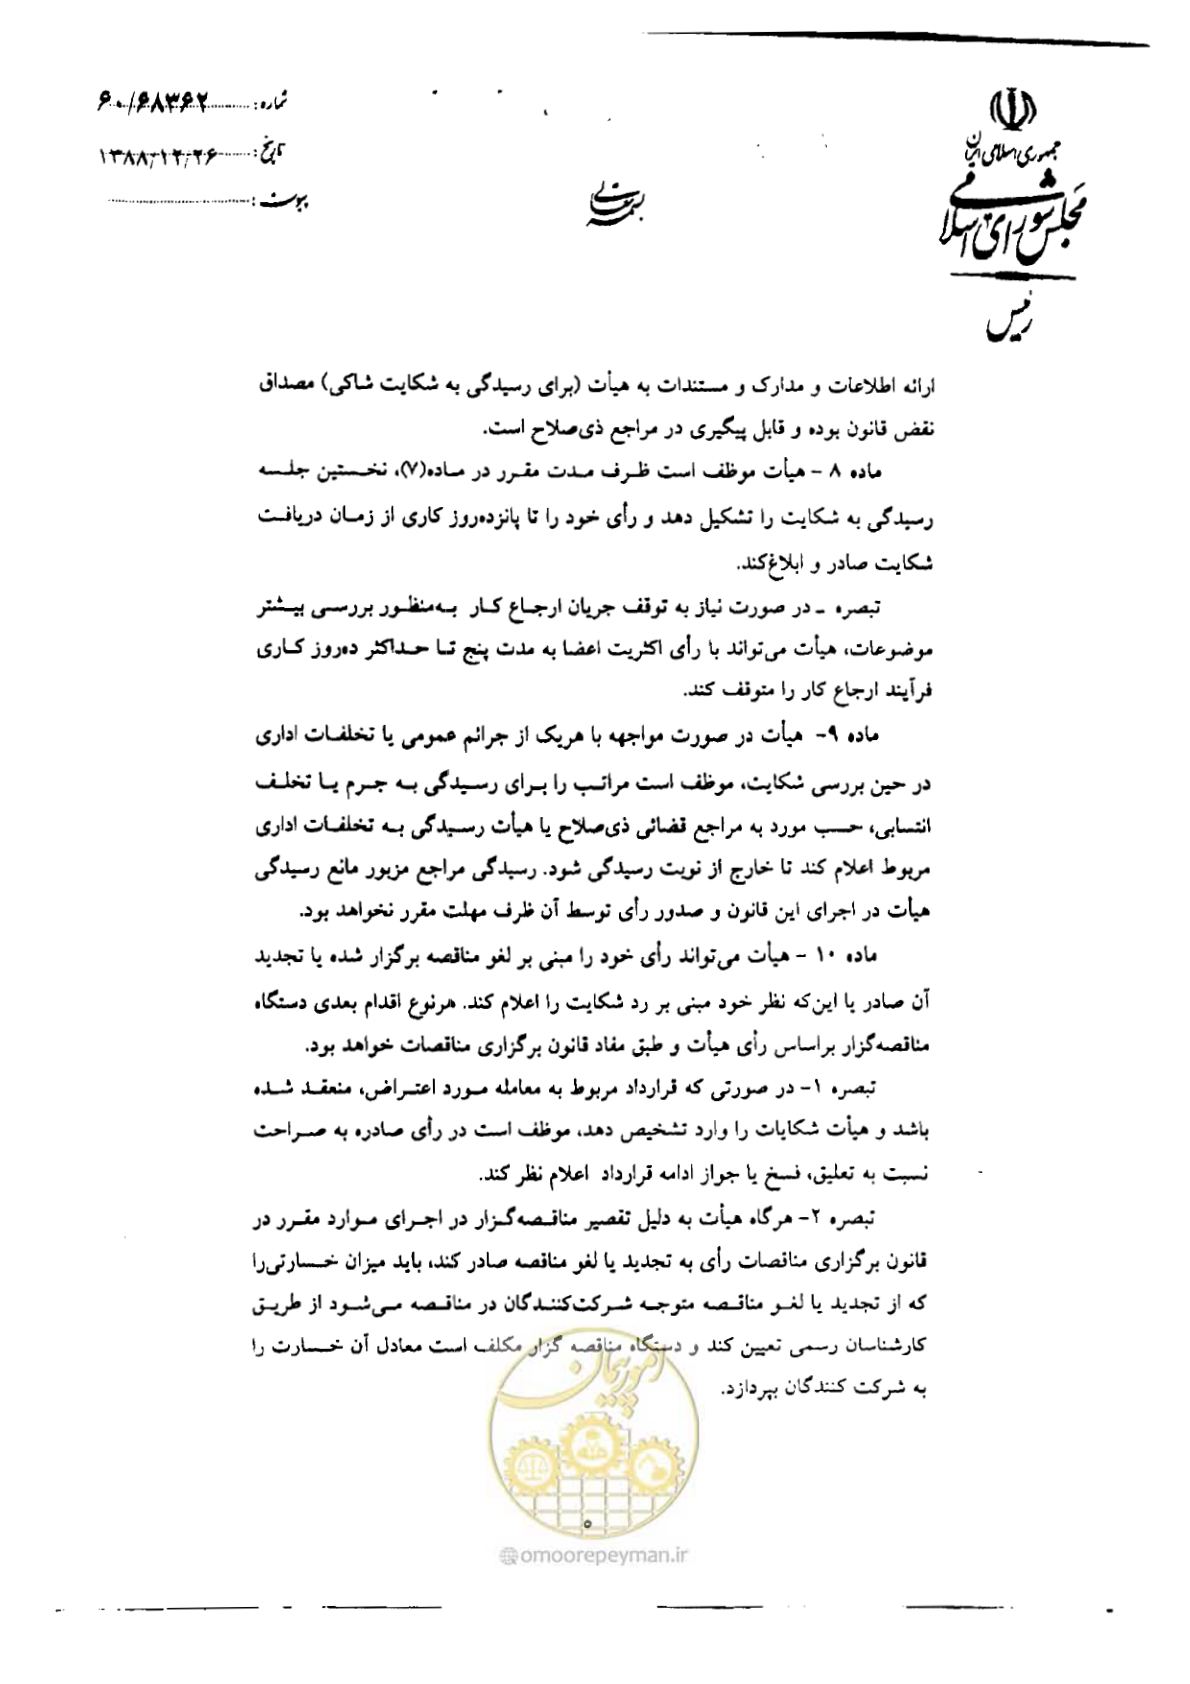 جمهوری اسلامی ایران
مجلس شورای اسلامی
رئیس
بسمه تعالی
شماره: ۶۰/۶۸۳۶۲
تاریخ: ۱۳۸۸/۱۲/۲۶
پیوست:
ارائه اطلاعات و مدارک و مستندات به هیأت (برای رسیدگی به شکایت شاکی) مصداق
نقض قانون بوده و قابل پیگیری در مراجع ذی‌صلاح است.
ماده ۸ - هیأت موظف است ظرف مدت مقرر در ماده(۷)، نخستین جلسه
رسیدگی به شکایت را تشکیل دهد و رأی خود را تا پانزده‌روز کاری از زمان دریافت
شکایت صادر و ابلاغ‌کند.
تبصره ـ در صورت نیاز به توقف جریان ارجاع کار به‌منظور بررسی بیشتر
موضوعات، هیأت می‌تواند با رأی اکثریت اعضا به مدت پنج تا حداکثر ده‌روز کاری
فرآیند ارجاع کار را متوقف کند.
ماده ۹- هیأت در صورت مواجهه با هریک از جرائم عمومی یا تخلفات اداری
در حین بررسی شکایت، موظف است مراتب را برای رسیدگی به جرم یا تخلف
انتسابی، حسب مورد به مراجع قضائی ذی‌صلاح یا هیأت رسیدگی به تخلفات اداری
مربوط اعلام کند تا خارج از نوبت رسیدگی شود. رسیدگی مراجع مزبور مانع رسیدگی
هیأت در اجرای این قانون و صدور رأی توسط آن ظرف مهلت مقرر نخواهد بود.
ماده ۱۰ - هیأت می‌تواند رأی خود را مبنی بر لغو مناقصه برگزار شده یا تجدید
آن صادر یا این‌که نظر خود مبنی بر رد شکایت را اعلام کند. هرنوع اقدام بعدی دستگاه
مناقصه‌گزار براساس رأی هیأت و طبق مفاد قانون برگزاری مناقصات خواهد بود.
تبصره ۱- در صورتی که قرارداد مربوط به معامله مورد اعتراض، منعقد شده
باشد و هیأت شکایات را وارد تشخیص دهد، موظف است در رأی صادره به صراحت
نسبت به تعلیق، فسخ یا جواز ادامه قرارداد اعلام نظر کند.
تبصره ۲- هرگاه هیأت به دلیل تقصیر مناقصه‌گزار در اجرای موارد مقرر در
قانون برگزاری مناقصات رأی به تجدید یا لغو مناقصه صادر کند، باید میزان خسارتی‌را
که از تجدید یا لغو مناقصه متوجه شرکت‌کنندگان در مناقصه می‌شود از طریق
کارشناسان رسمی تعیین کند و دستگاه مناقصه گزار مکلف است معادل آن خسارت را
به شرکت کنندگان بپردازد.
امور پیمان
۵
@omoorepeyman.ir